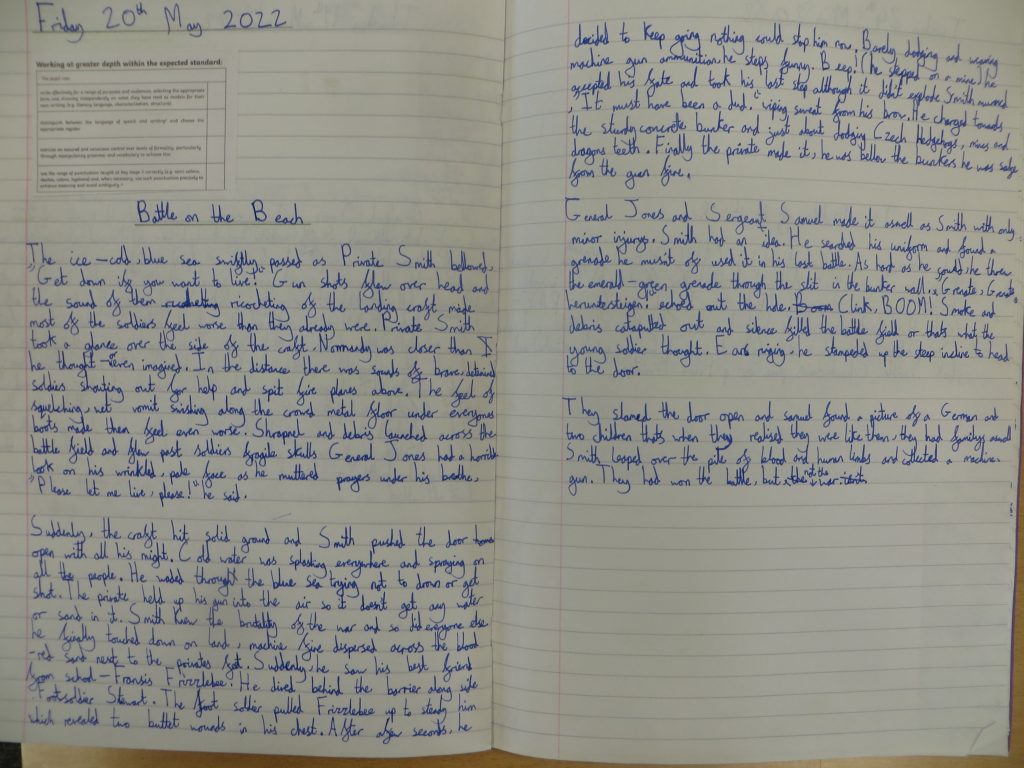 Friday 20th May 2022
Working at greater depth within the expected standard:
The pupil can:
write effectively for a range of purposes and audiences, selecting the appropriate
form and drawing independently on what they have read as models for their
own writing (e.g. literary language, characterisation, structure)
distinguish between the language of speech and writing³ and choose the
appropriate register
exercise an assured and conscious control over levels of formality, particularly
through manipulating grammar and vocabulary to achieve this
use the range of punctuation taught at key stage 2 correctly (e.g. semi-colons,
dashes, colons, hyphens) and, when necessary, use such punctuation precisely to
enhance meaning and avoid ambiguity.⁴
Battle on the Beach
The ice-cold, blue sea swiftly passed as Private Smith bellowed,
"Get down if you want to live!" Gun shots flew over head and
the sound of them ricocheting of the landing craft made
most of the soldiers feel worse than they already were. Private Smith
took a glance over the side of the craft. Normandy was closer than
he thought - or even imagined. In the distance there was sounds of brave, determined
soldiers shouting out for help and spit fire planes above. The feel of
squelching, wet vomit swishing along the metal floor under everyones
boots made them feel even worse. Shrapnel and debris launched across the
battle field and flew past soldiers fragile skulls General Jones had a horrible
look on his wrinkled, pale face as he muttered prayers under his breathe,
"Please let me live, please!" he said.
Suddenly, the craft hit solid ground and Smith pushed the door
open with all his might. Cold water was splashing everywhere and spraying on
all the people. He waded throught the blue sea trying not to drown or get
shot. The private held up his gun into the air so it doesn't get any water
or sand in it. Smith knew the brutality of the war and so did everyone else
he finally touched down on land, machine fire dispersed across the blood
-red sand next to the privates foot. Suddenly, he saw his best friend
from school - Fransis Frizzlebee. He dived behind the barrier along side
Footsoldier Stewart. The foot soldier pulled Frizzlebee up to steady him
which revealed two bullet wounds in his chest. After a few seconds, he
decided to keep going nothing could stop him now. Barely dodging and weaving
machine gun ammunition, he steps funny. Beep! (He stepped on a mine!) he
accepted his fate and took his last step although it didn't explode Smith murmured
, "It must have been a dud." wiping sweat from his brow. He charged towards
the sturdy concrete bunker and just about dodging Czech Hedgehogs, mines and
dragons teeth. Finally the private made it, he was bellow the bunkers he was safe
from the gun fire.
General Jones and Sergeant Samuel made it aswell as Smith with only
minor injurys. Smith had an idea. He searched his uniform and found a
grenade he musn't of used it in his last battle. As hard as he could, he threw
the emerald-green grenade through the slit in the bunker wall. "Grenate, Grenate
heruntersteigen" echoed out the hole. Clink, BOOM! Smoke and
debris catapulted out and silence filled the battle field or thats what the
young soldier thought. Ears ringing, he stampeded up the steep incline to head
to the door.
They slamed the door open and samuel found a picture of a German and
two children thats when they realised they were like them, they had familys
Smith leaped over the pile of blood and human limbs and collected a machine
gun. They had won the battle, but not the war.